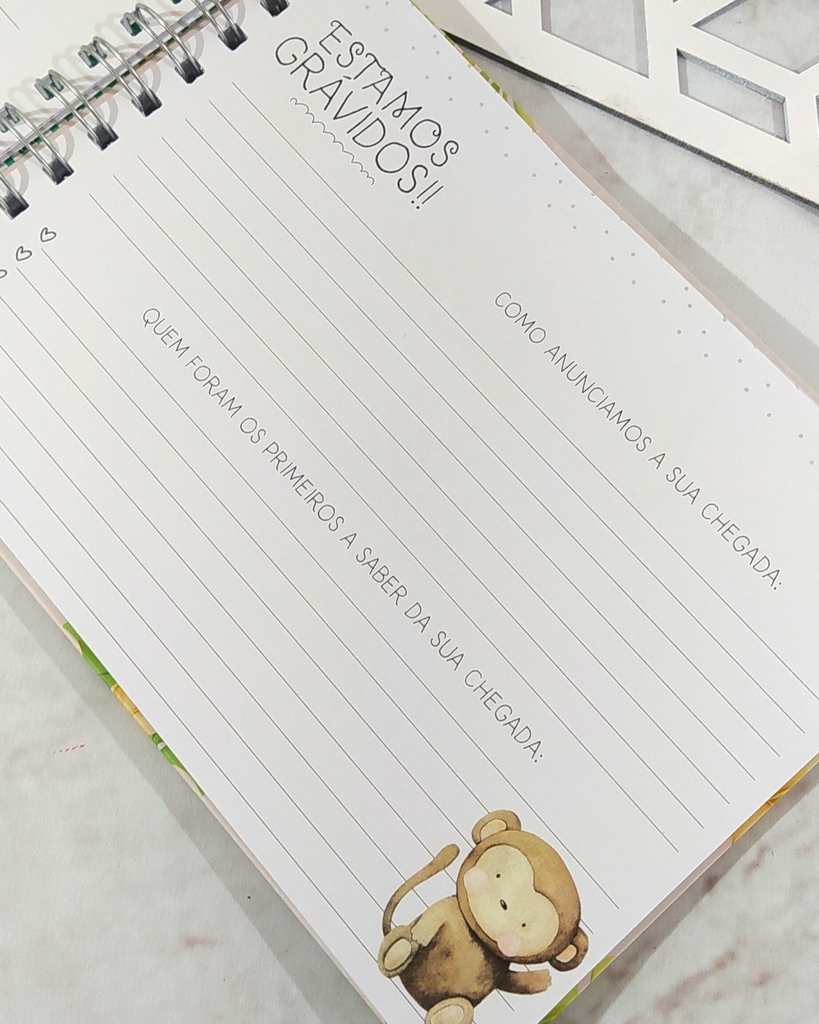 ESTAMOS
GRÁVIDOS!!
COMO ANUNCIAMOS A SUA CHEGADA:
QUEM FORAM OS PRIMEIROS A SABER DA SUA CHEGADA: